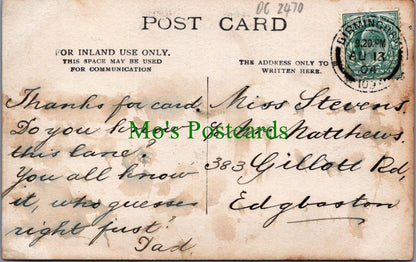 DC 2470
POST CARD
FOR INLAND USE ONLY.
THIS SPACE MAY BE USED
FOR COMMUNICATION
THE ADDRESS ONLY TO
WRITTEN HERE.
BIRMINGHAM
8.20.PM
AU 13
04
Thanks for card.
Do you know
this lane?
You all know
it, who guesses
right first?
Dad.
Miss Stevens.
Matthews.
383 Gillott Rd,
Edgbaston
Mo's Postcards